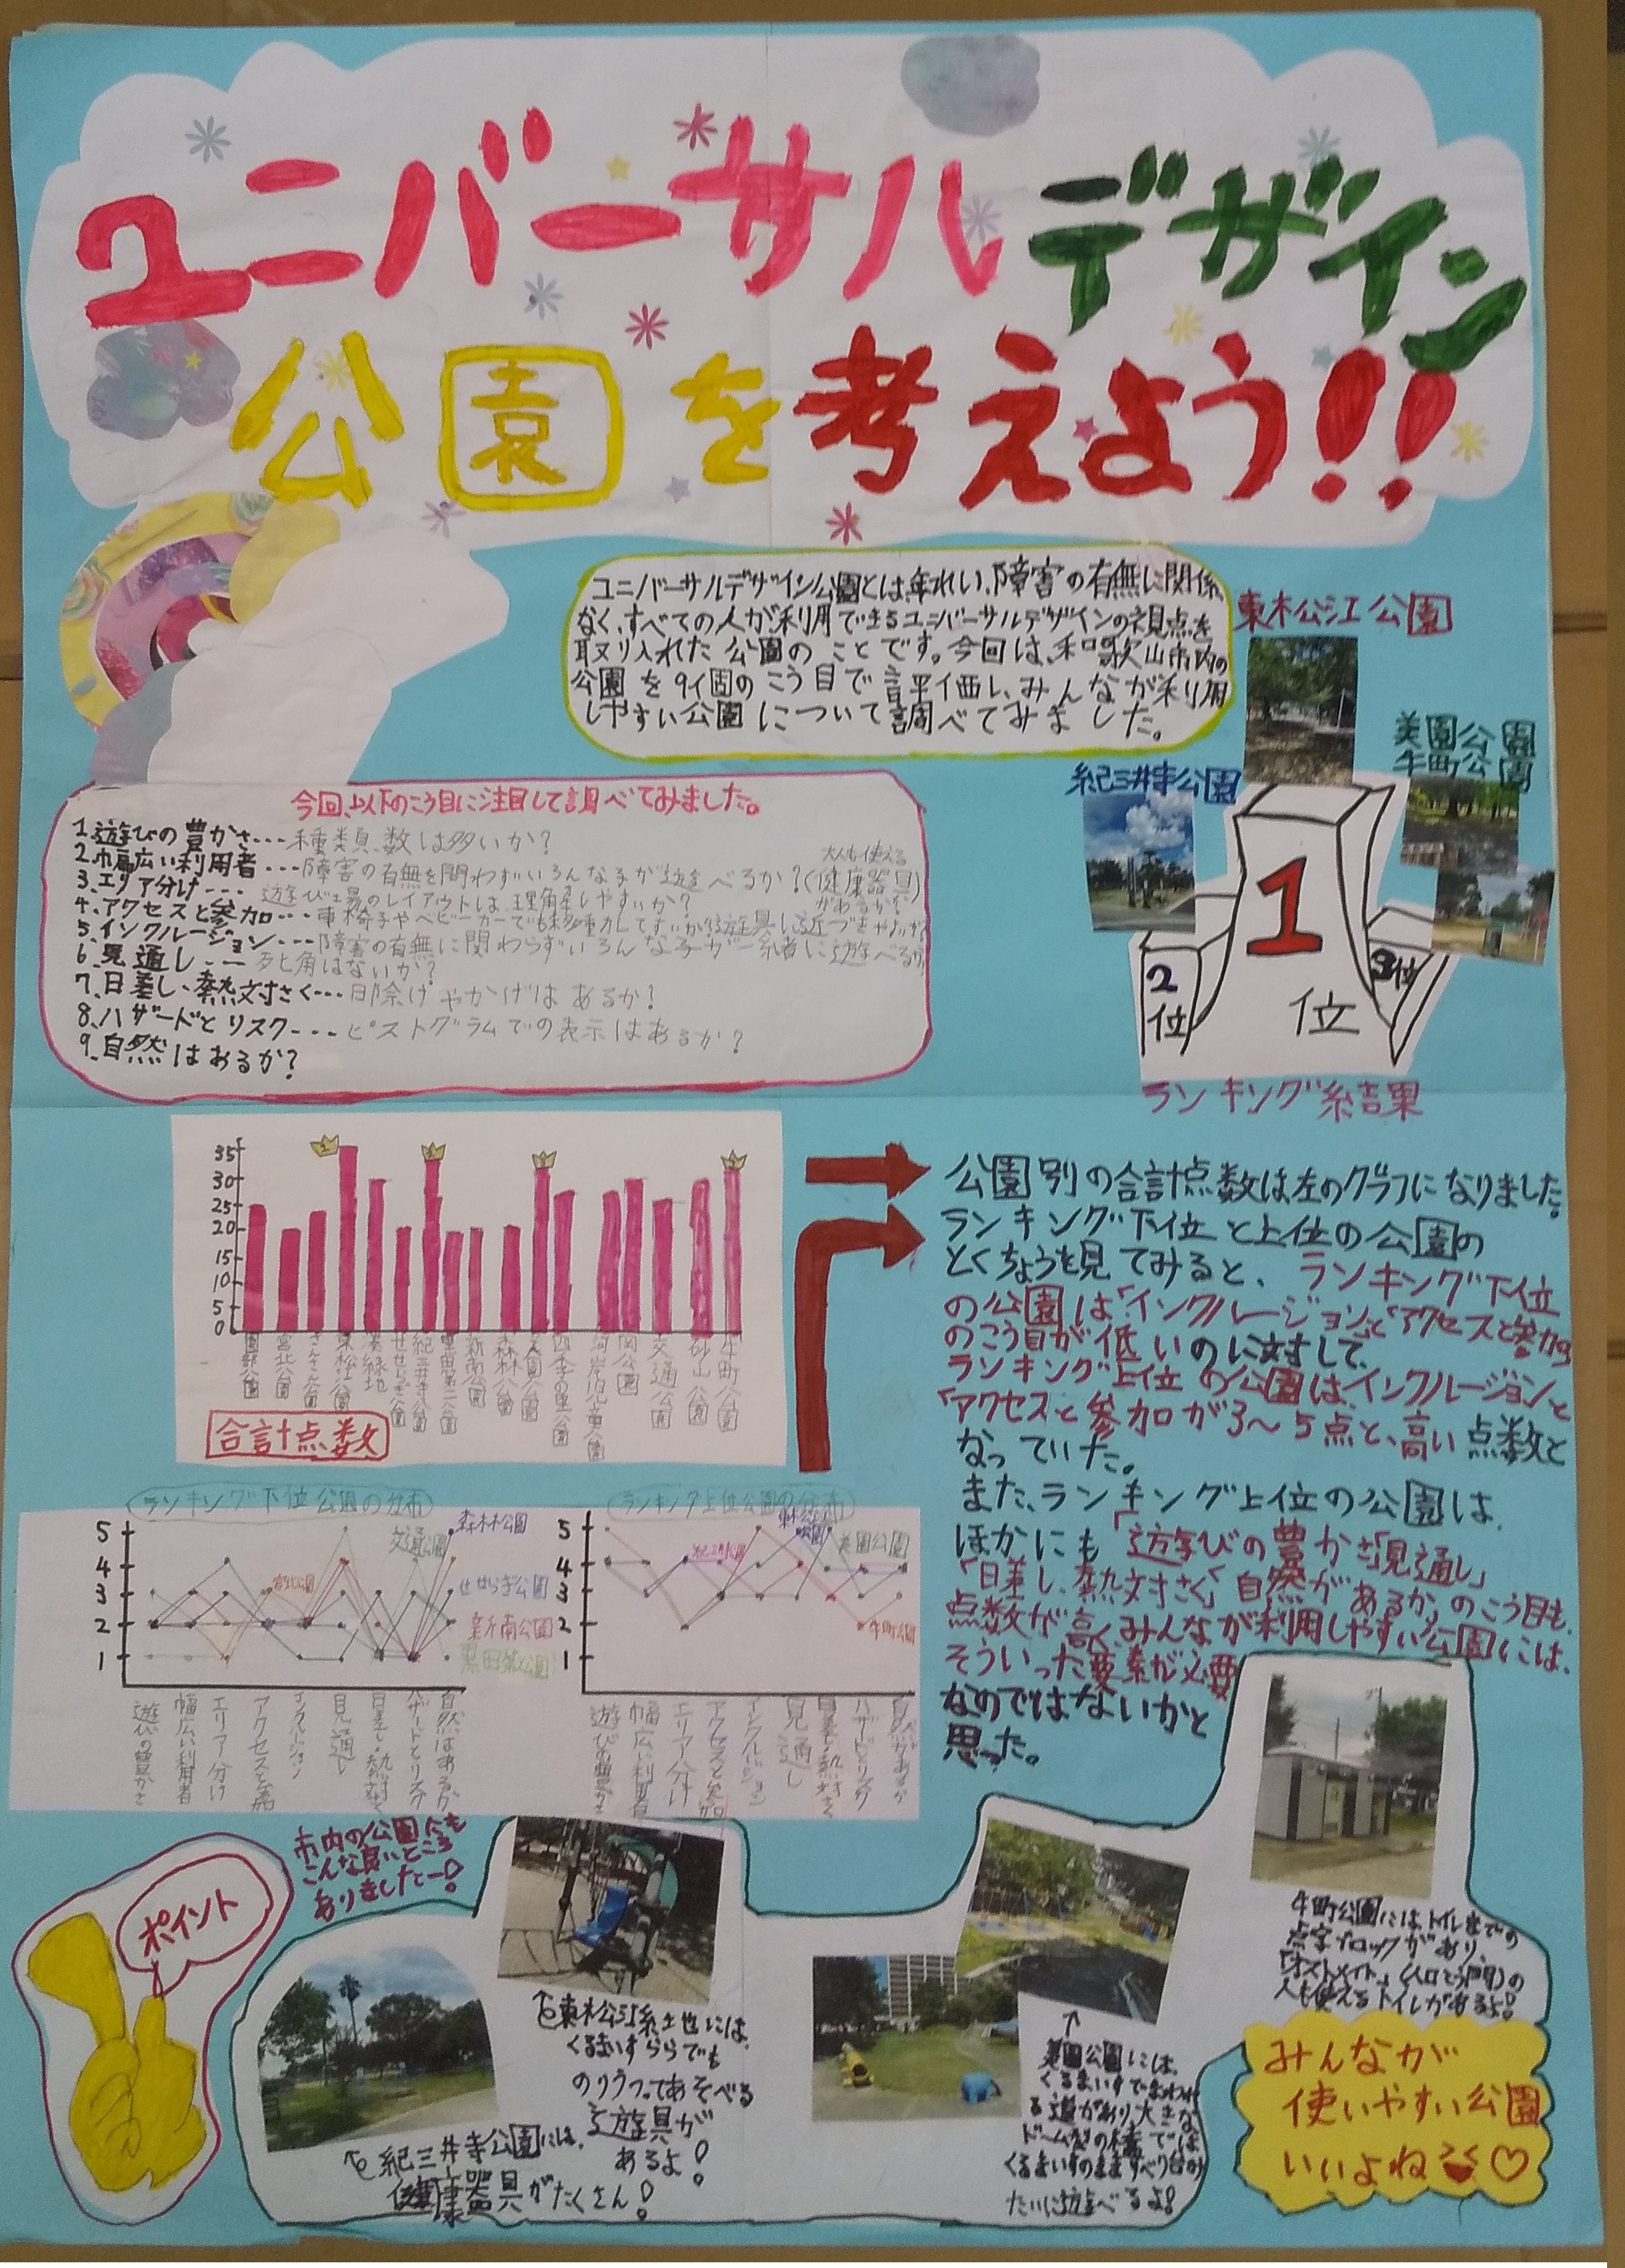 ユニバーサルデザイン
公園を考えよう!!
ユニバーサルデザイン公園とは年れい、障害の有無に関係
なく、すべての人が利用できるユニバーサルデザインの視点を
取り入れた公園のことです。今回は、和歌山市内の
公園を9個のこう目で評価し、みんなが利用
しやすい公園について調べてみました。
東松江公園
紀三井寺公園
美園公園
牛町公園
1
位
2
位
3位
ランキング結果
今回、以下のこう目に注目して調べてみました。
1.遊びの豊かさ...種類、数は多いか?
2.幅広い利用者...障害の有無を問わずいろんな子が遊べるか?(健康器具)
大人も使える
があるか?
3.エリア分け... 遊び場のレイアウトは、理解しやすいか?
4.アクセスと参加...車椅子やベビーカーでも移動してすいか?遊具に近づきやすいか?
5.インクルージョン...障害の有無に関わらずいろんな子が一緒に遊べるか?
6.見通し... 死角はないか?
7.日差し、熱対さく...日除けやかげはあるか?
8.ハザードとリスク...ピストグラムでの表示はあるか?
9.自然はあるか?
35
30
25
20
15
10
5
0
園部公園
宮北公園
さんさん公園
東松江公園
せせらぎ公園
紀三井寺公園
新南公園
森林公園
美園公園
四季の里公園
河岸児童公園
岡公園
交通公園
砂山公園
牛町公園
合計点数
公園別の合計点数は左のグラフになりました。
ランキング下位と上位の公園の
とくちょうを見てみると、ランキング下位
の公園は「インクルージョン」と「アクセスと参加」
のこう目が低いのに対して、
ランキング上位の公園は、インクルージョンと
「アクセスと参加が3〜5点と、高い点数と
なっていた。
また、ランキング上位の公園は、
ほかにも「遊びの豊かさ」「見通し」
「日差し、熱対さく」「自然があるか」のこう目も
点数が高く、みんなが利用しやすい公園には、
そういった要素が必要
なのではないかと
思った。
ランキング下位公園の分布
5
4
3
2
1
森林公園
交通公園
宮北公園
せせらぎ公園
新南公園
遊びの豊かさ
幅広い利用者
エリア分け
アクセスと参加
インクルージョン
見通し
日差し・熱対さく
ハザードとリスク
自然はあるか
ランキング上位公園の分布
5
4
3
2
1
東松江公園
紀三井寺公園
美園公園
牛町公園
遊びの豊かさ
幅広い利用者
エリア分け
アクセスと参加
インクルージョン
見通し
日差し・熱対さく
ハザードとリスク
自然があるか
市内の公園にも
こんな良いところ
ありましたー!
ポイント
東松江緑地には、
くるまいすららでも
のりうつってあそべる
遊具が
あるよ!
紀三井寺公園には、
健康器具がたくさん!
美園公園には、
くるまいすでまわれ
る道があり、大きな
ドーム型の横では
くるまいすのまますべり台み
たいに遊べるよ!
牛町公園には、トイレまでの
点字ブロックがあり、
「オストメイト」(人口こう門)の
人も使えるトイレがあるよ!
みんなが
使いやすい公園
いいよね